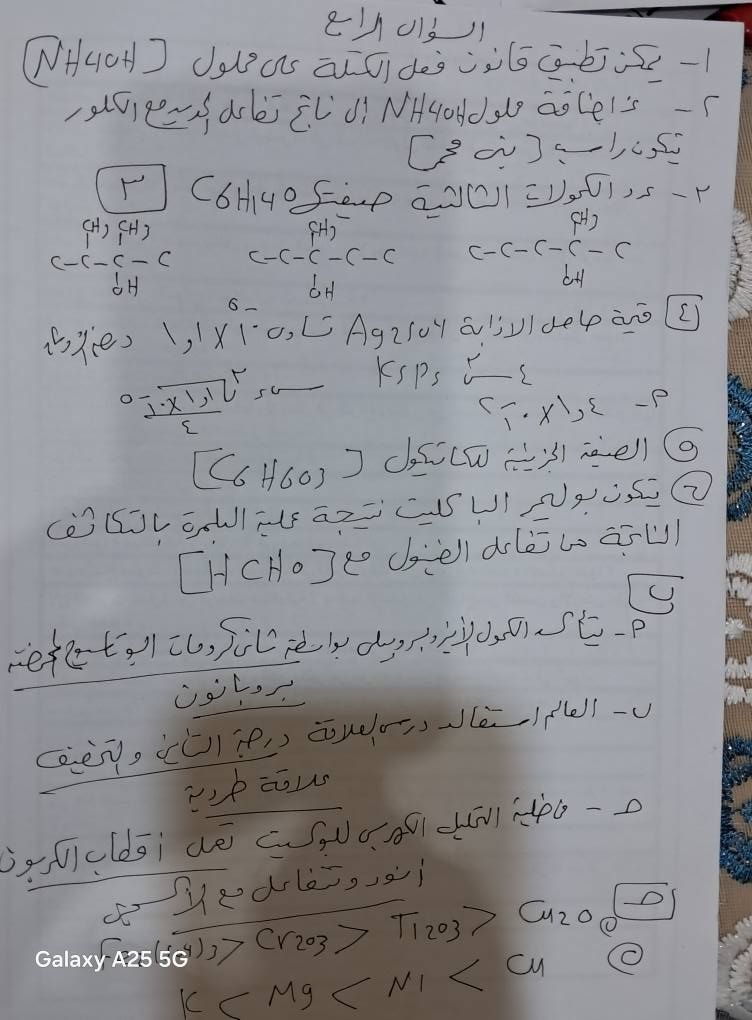 السؤال الرابع
١- يمكن تطبيق قانون فعل الكتلة على محلول [NH4OH]
٢- عند اضافة محلول NH4OH الى ناتج تفاعل الحديد مع الكلور
يتكون راسب [بنى محمر]
٣- عدد الكحولات الثالثية صيغتها C6H14O [٣]
CH3 CH3 CH3 CH3
C-C-C-C C-C-C-C-C C-C-C-C-C
OH OH OH
[٤] قيمة حاصل الاذابة Ag2SO4 تساوى ١,١×١٠-
٤س٣
٢-
٥ الصيغة الجزيئية للكاتيكول [C6H6O3]
يتكون بوليمر الباكليت نتيجة عملية البلمرة بالتكاثف
الناتجة من تفاعل الفينول مع [HCHO]
ب
٢- يتأكسد الكحول الأيزوبروبيلى بواسطة ثانى كرومات البوتاسيوم المحمضة
بروبانون
ب- العالم استفالد درس العلاقة درجة التأين والتخفيف
علاقة طردية
حـ- خلية التحليل الكهربى للبوكسيت تعمل أقطاب الكربون
أنود وتتفاعل مع الأكسجين
حـ Cr2O3 > Ti2O3 > Cu2O
K < Mg < Ni < Cu
Galaxy A25 5G